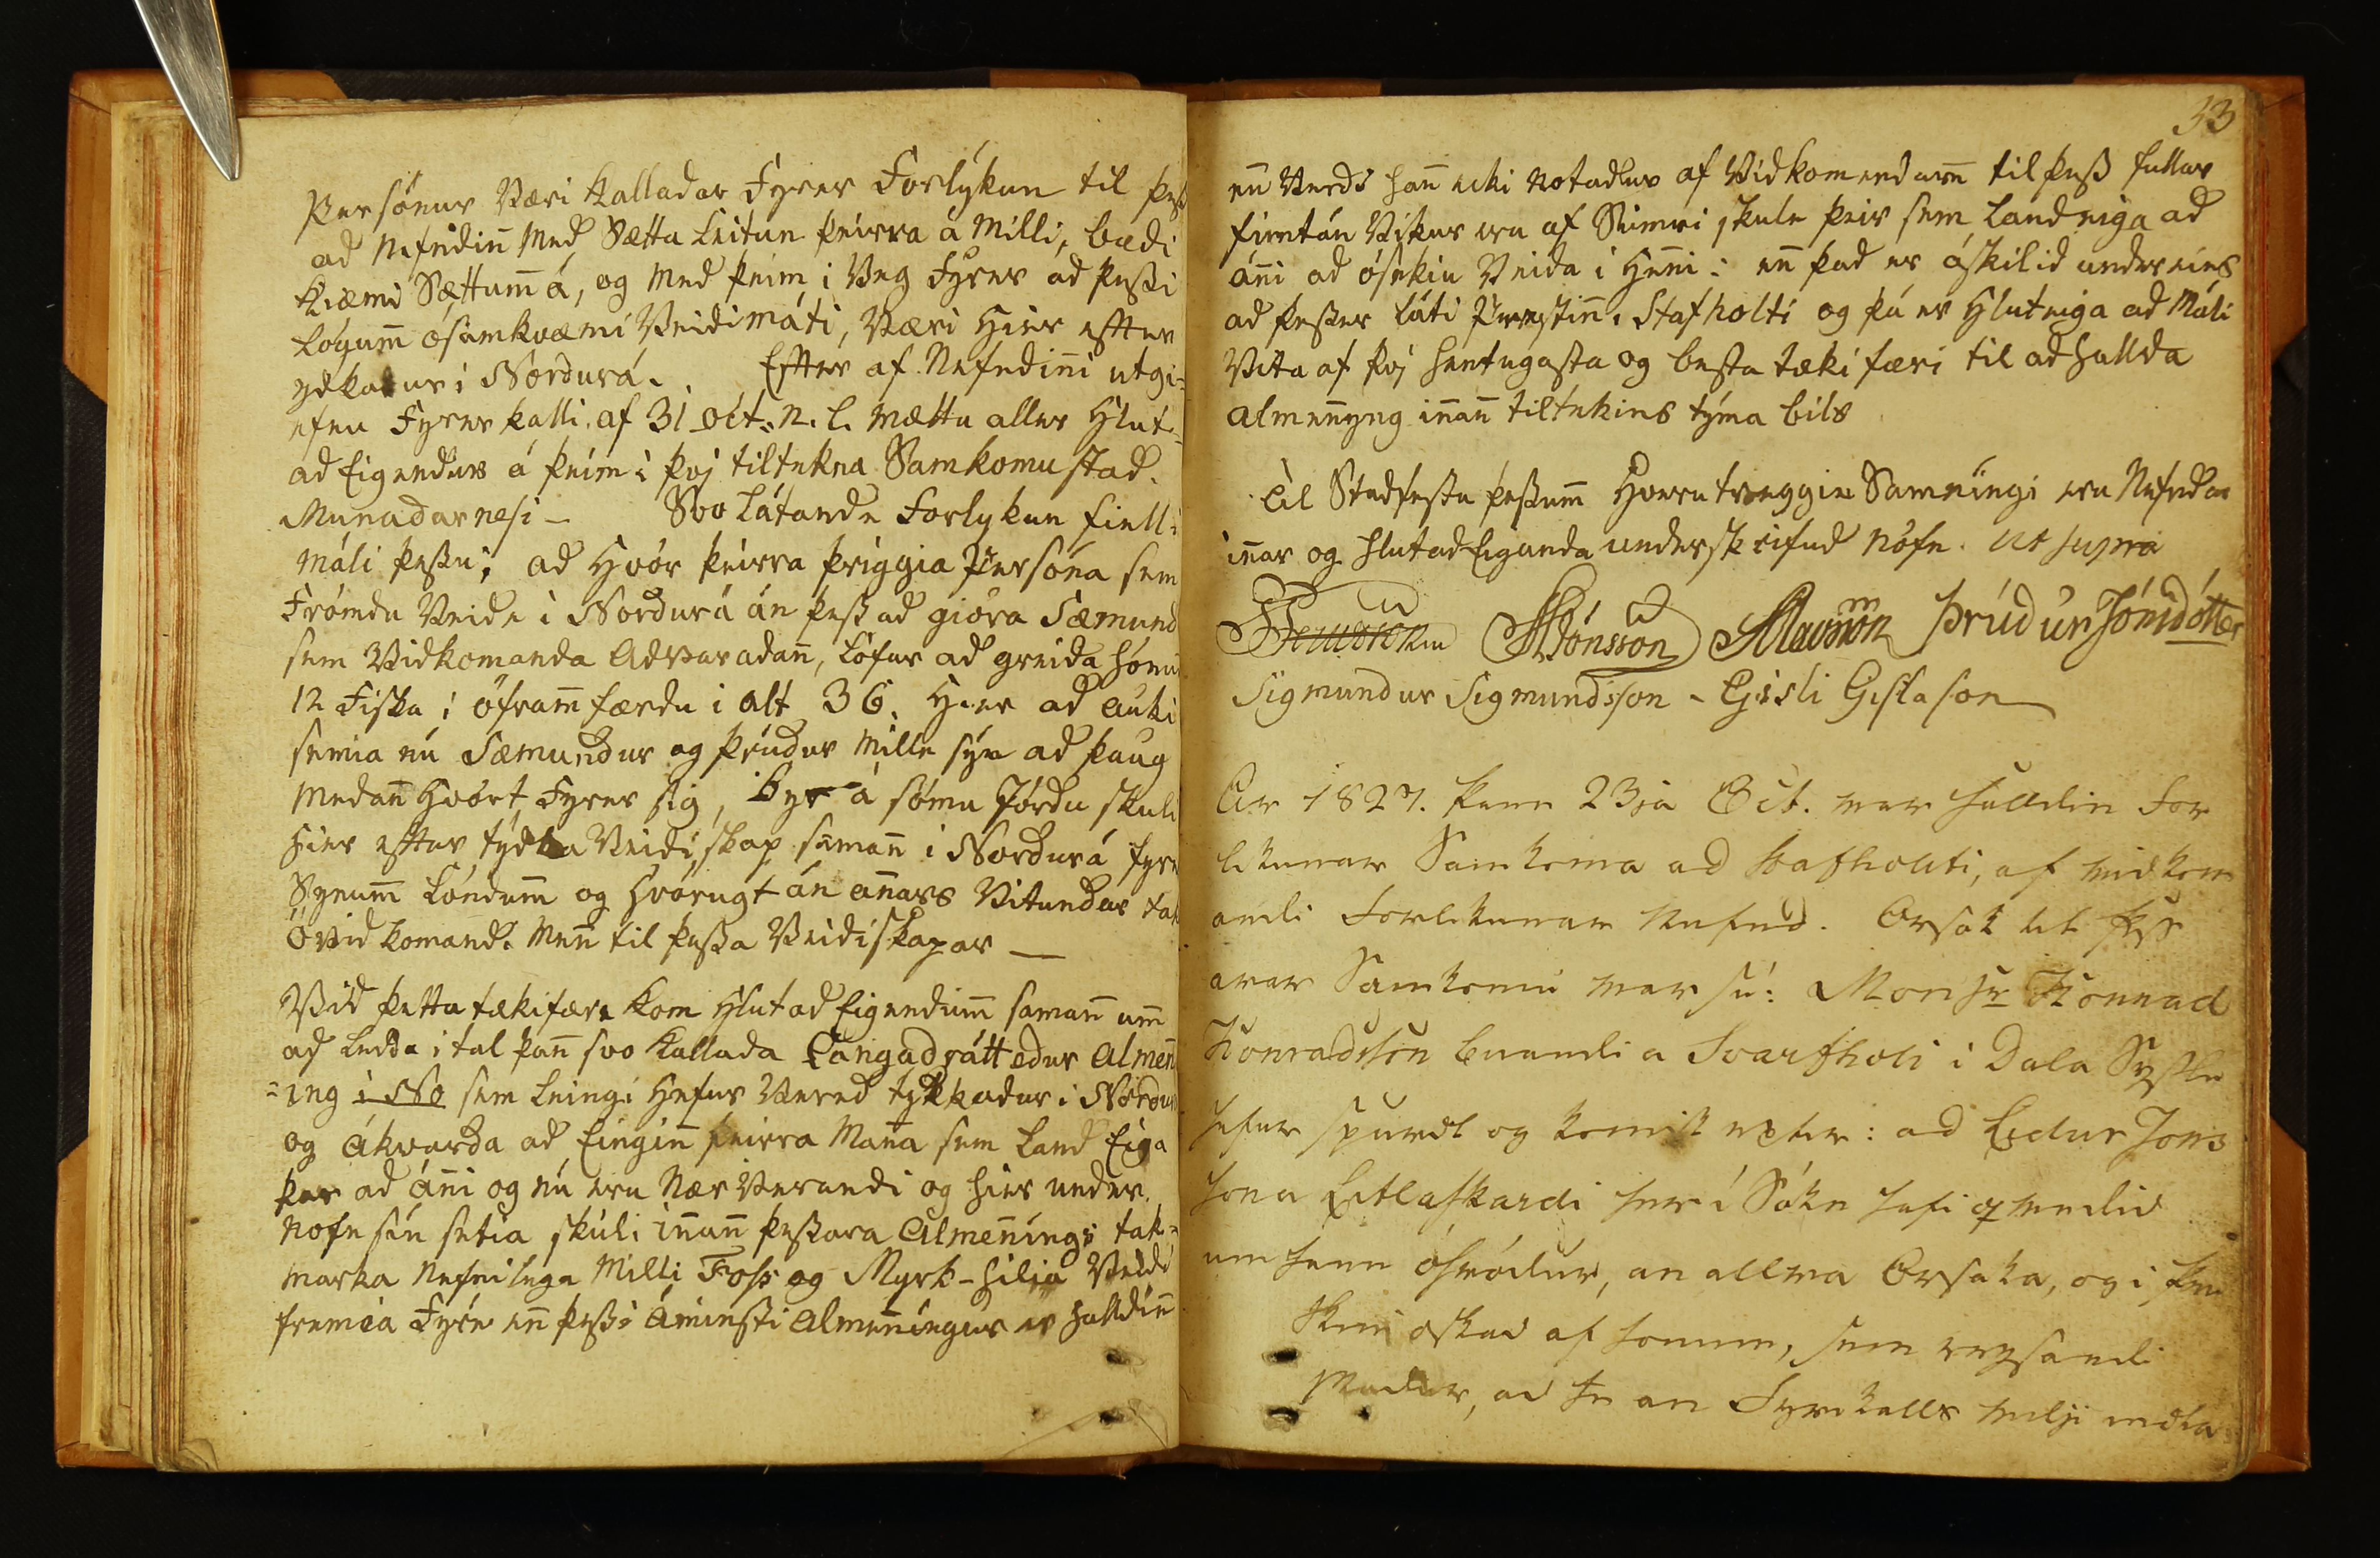 Persónur Væri kalladar Fyrer Forlýkun til þess
ad Nefndiñ Med Sætta Leitun þeirra á Milli, bædi
kiæmi Sættum̃ á, og Med þeim i Veg Fyrer ad þessi
Lógum̃ ósamkvæmi Veidimáti, Væri Hier efter
ydkadur i Nordurá. Efter af Nefndiñi utgi-
efnu Fyrer kalli af 31 oct. n. l. Mættu aller Hlut-
ad Eigendur á þeim i þvj tiltekna Samkomu stad
Munadarnesi – Svo Látande Forlykun fiell i
Máli þessu; ad Hvór þeirra þriggia Persóna sem
Frómdu Veide i Nordurá án þess ad gióra Sæmund
sem Vidkomanda Advaradañ, Lófar ad greida hónum
12 Fiska i ófram̃færdu i alt 36. Hier ad auki
semia nú Sæmundur og Þrúdur Mille sýn ad þaug
Medañ Hvórt Fyrer sig, Byr á sómu Jórdu skuli
Hier efter týdka Veidiskap samañ i Nordurá fyrer
Synum̃ Lóndum̃ og Hvórugt án añars Vitundar tak
Óvidkomande Meñ til þessa Veidiskapar —
Vid þetta tækifære kom Hlutad Eigendum̃ samañ um̃
ad Leida i tal þañ svo kallada Langadrátt edur Almeñ
=ing i No sem Leingi Hefur Vered tydkkadur i Nordurá
og Ákvarda ad Eingiñ þeirra Maña sem Land Eiga
þar ad áñi og nú eru Nær Verandi og Hier under
Nófn sýn setia skuli iñañ þessara Almeñings tak=
marka Nefnilega Milli Foss og Myrk-hilia Veidi
fremia Fyrr eñ þessi Áminsti Almeñingur er halldiñ
33
eñ Verdi hañ ecki Notadur af Vidkomendum̃ til þess fullar
fimtán Vikur eru af Sumri skule þeir sem Land eiga ad
áñi ad ósekiu Veida i Heñi: eñ þad er áskilid under eins
ad þesser láti Prestiñ i Stafholti og þá er Hluteiga ad Máli
Vita af þvj hentugasta og besta tækifæri til ad hallda
almeñyng iñañ tiltekins týma bils
Til Stadfestu þessum̃ Hvoru tveggia Samningi eru Nefndar
iñar og hlutad Eiganda underskrifud nófn. Ut supra
Jónsson Þrúdur Jónsdótter
Sigmundur Sigmundsson – Gisli Gislason
Ar 1827. þann 23ja Oct. var halldin For
likunar Samkoma ad Stafholti, af vidkom
andi Forlikunar Nefnd. Orsak til þess
arar Samkomu var sú: Monsr Konrad
Konradsson buandi a Svarfholi i Dala Syslu
hefur spurdt og komist eptir: ad Eidur Jons
son a Litlaskardi her i Sókn hafi qvedid
um hann óhródur, an allra Orsaka, og i þvi
skini oskad af honum, sem reysandi
Madur, ad he an Fyrikalls vilji mæta